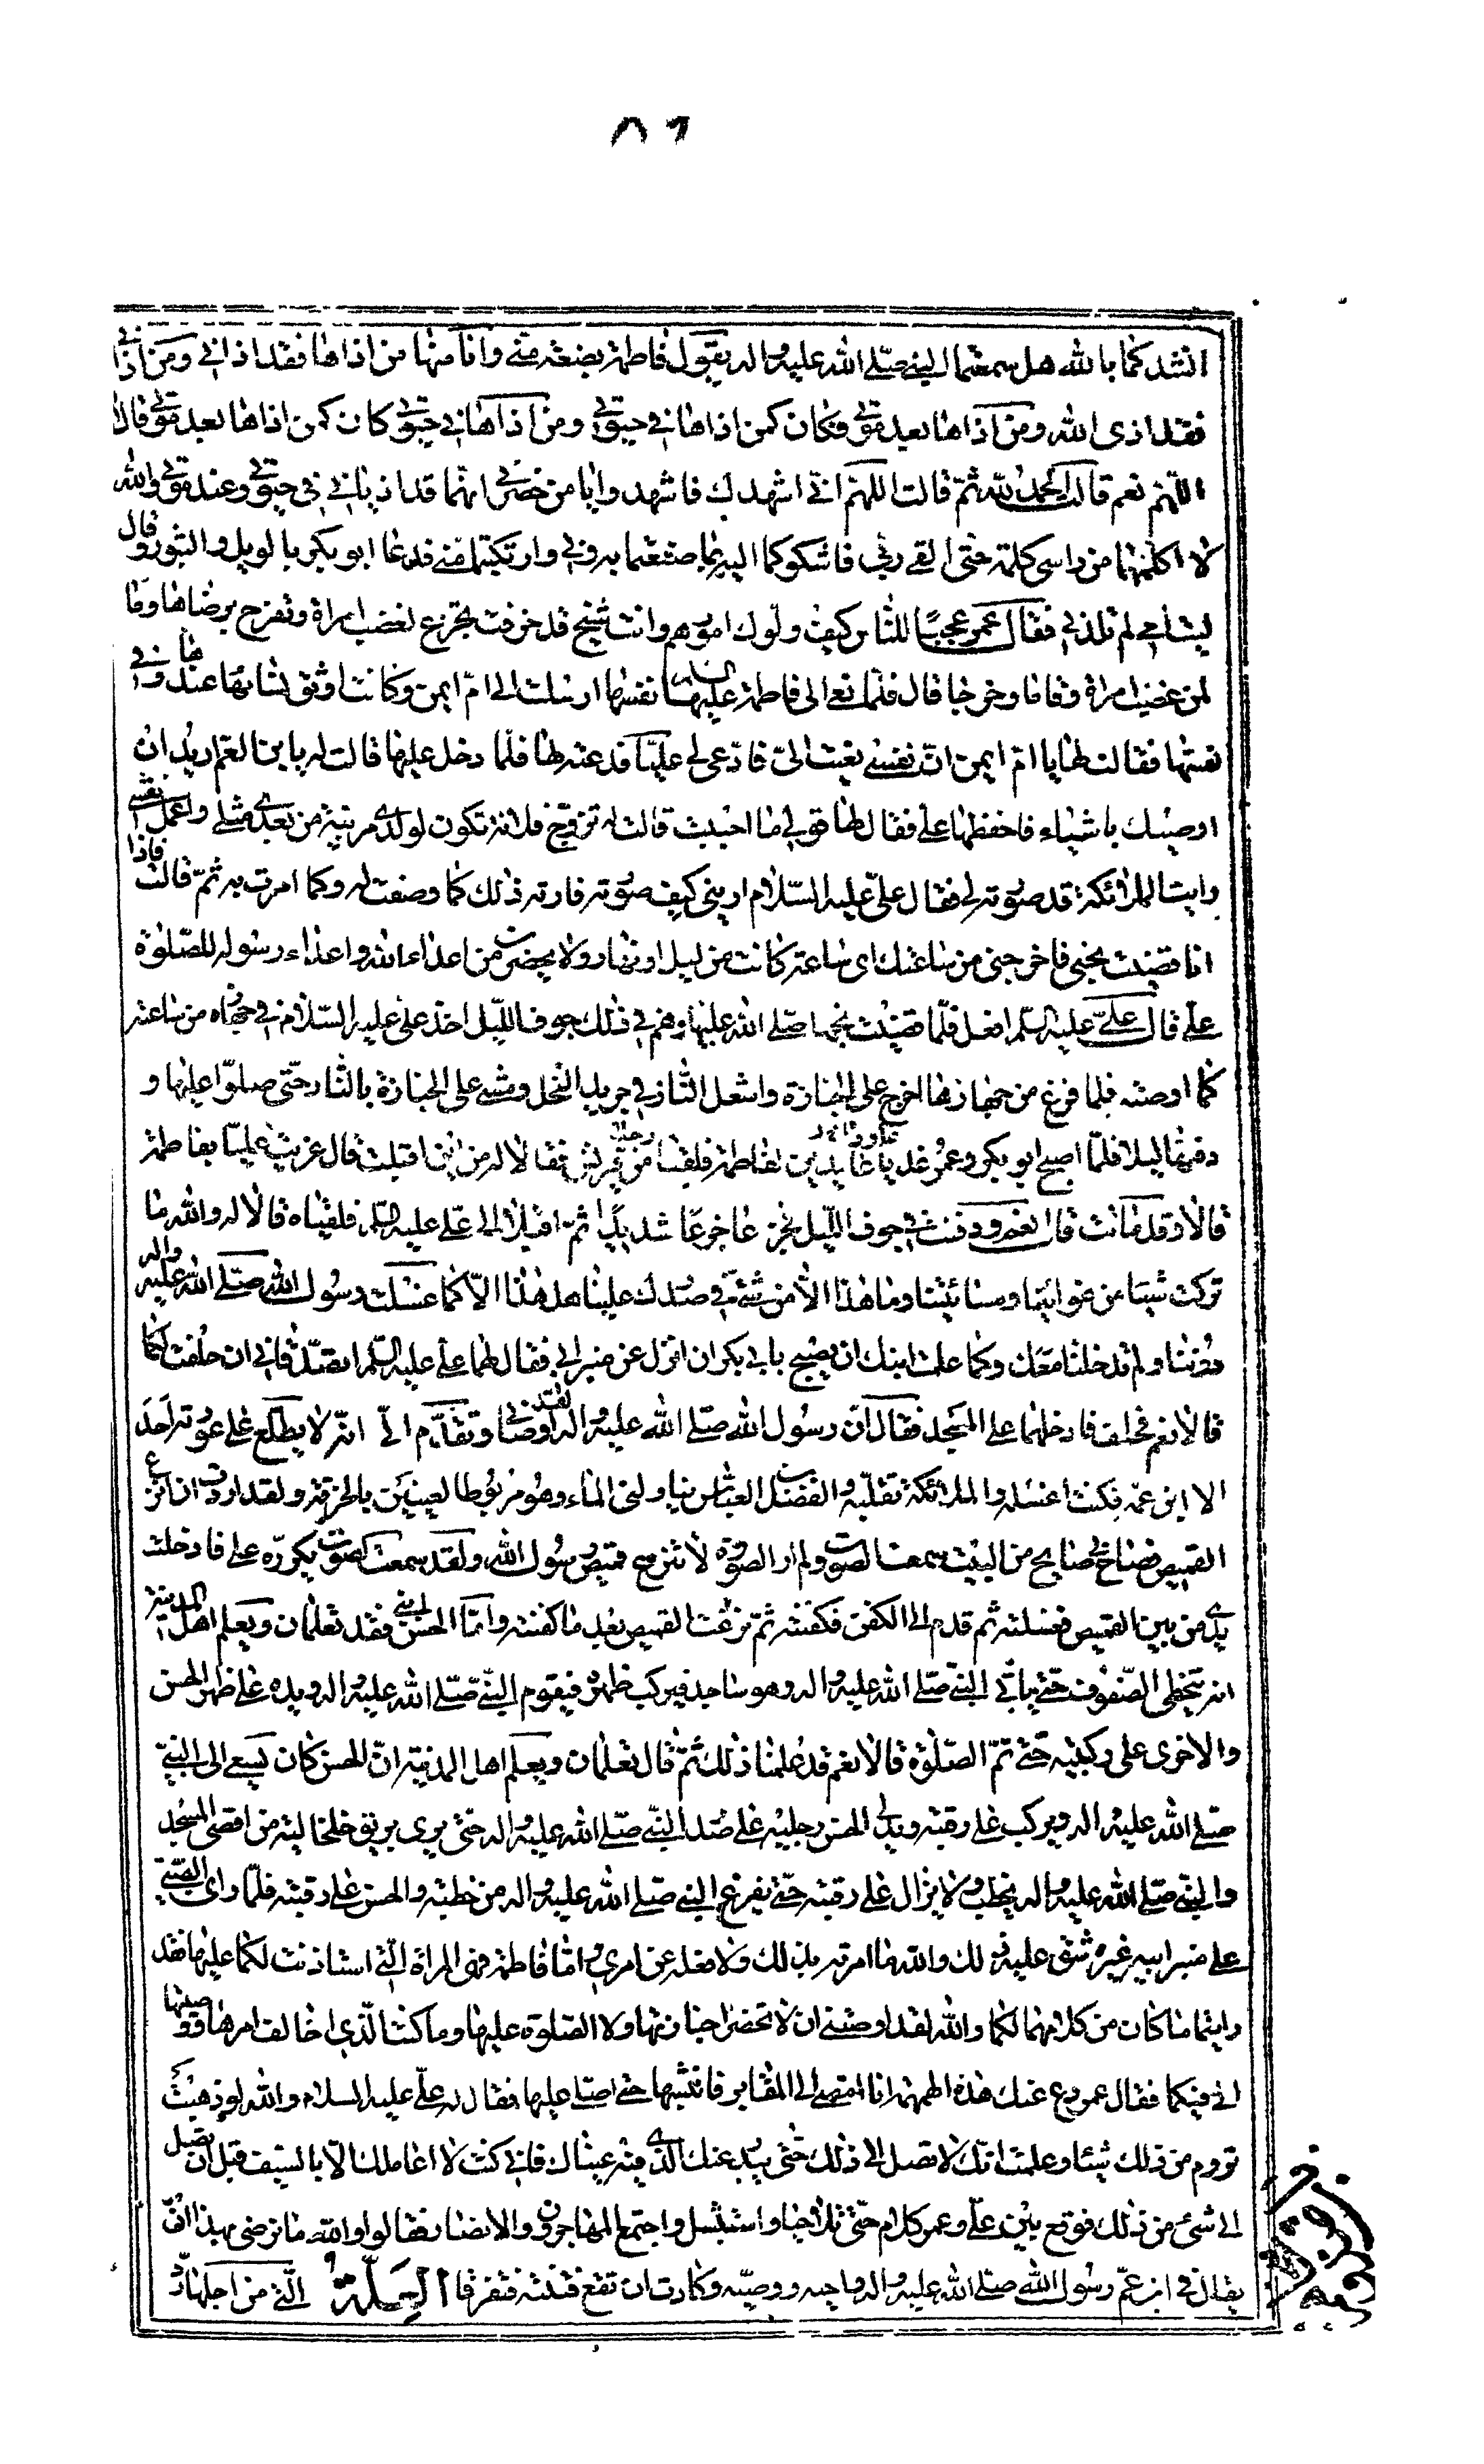 ٨٦
انشدكما بالله هل سمعتما النبي صلى الله عليه واله يقول فاطمة بضعة مني وانا منها من اذاها فقد اذاني ومن اذاني
فقد اذى الله ومن اذاها بعد موتي فكان كمن اذاها في حيوتي ومن اذاها في حيوتي كان كمن اذاها بعد موتي قالا
اللهم نعم قالت الحمد لله ثم قالت اللهم اني اشهدك فاشهدوا يا من حضرني انهما قد اذياني في حيوتي وعند موتي والله
لا اكلمنهما من راسي كلمة حتى القى ربي فاشكوكما اليه بما صنعتما به وبي وارتكبتما مني فدعا ابو بكر بالويل والثبور وقال
ليت امي لم تلدني فقال عمر عجبا للناس كيف ولوك امورهم وانت شيخ قد خرفت تجزع لغضب امراة وتفرح برضاها وما
لمن غضب امراة وقاما وخرجا قال فلما نعي الى فاطمة عليها السلام نفسها ارسلت الى ام ايمن وكانت اوثق نسائها عندها وفي
نفسها فقالت لها يا ام ايمن ان نفسي نعيت الي فادعي لي عليا فدعته لها فلما دخل عليها قالت له يا بن العم اريد ان
اوصيك باشياء فاحفظها علي فقال لها قولي ما احببت قالت له تزوج فلانة تكون لولدي مربية من بعدي مثلي واعمل نعشي
رايت الملائكة قد صورته لي فقال علي عليه السلام اريني كيف صورته فارته ذلك كما وصفت له وكما امرت به ثم قالت فاذا
انا قضيت نحبي فاخرجني من ساعتك اي ساعة كانت من ليل او نهار ولا يحضرن من اعداء الله واعداء رسوله للصلوة
علي قال علي عليه السلم افعل فلما قضت نحبها صلى الله عليها وهم في ذلك جوف الليل اخذ علي عليه السلام في جهازها من ساعته
كما اوصته فلما فرغ من جهازها اخرج علي الجنازة واشعل النار في جريد النخل ومشى على الجنازة بالنار حتى صلوا عليها و
دفنها ليلا فلما اصبح ابو بكر وعمر غديا عايدين لفاطمة فلقيا رجلا من قريش فقالا له من اين اقبلت قال عزيت عليا بفاطمة
قالا وقد ماتت قال نعم ودفنت في جوف الليل فجزعا جزعا شديدا ثم اقبلا الى علي عليه السلم فلقياه قالا له والله ما
تركت شيئا من غوائلنا ومسائتنا وما هذا الا من شيء في صدرك علينا هل هذا الا كما غسلت رسول الله صلى الله عليه واله
دوننا ولم تدخلنا معك وكما علمت ابنك ان يصيح بابي بكر ان انزل عن منبر ابي فقال لهما علي عليه السلم اتصدقاني ان حلفت لكما
قالا نعم فحلف فادخلهما على المسجد فقال ان رسول الله صلى الله عليه واله لقد اوصاني وتقدم الي انه لا يطلع على عورته احد
الا ابن عمه فكنت اغسله والملائكة تقلبه والفضل بن العباس يناولني الماء وهو مربوط العينين بالخرقة ولقد اردت ان انزع
القميص فصاح بي صايح من البيت سمعت الصوت ولم ار الصورة لا تنزع قميص رسول الله ولقد سمعت الصوت يكرره علي فادخلت
يدي من بين القميص فغسلته ثم قدم الي الكفن فكفنته ثم نزعت القميص بعد ما كفنته واما الحسن ابني فقد تعلمان ويعلم اهل المدينة
انه يتخطى الصفوف حتى ياتي النبي صلى الله عليه واله وهو ساجد فيركب ظهره فيقوم النبي صلى الله عليه واله ويده على ظهر الحسن
والاخرى على ركبتيه حتى تم الصلوة قالا نعم قد علمنا ذلك ثم قال تعلمان ويعلم اهل المدينة ان الحسن كان يسعى الى النبي
صلى الله عليه واله ويركب على رقبته ويدلي الحسن رجليه على صدر النبي صلى الله عليه واله حتى يرى بريق خلخاليه من اقصى المسجد
والنبي صلى الله عليه واله يخطب ولا يزال على رقبته حتى يفرغ النبي صلى الله عليه واله من خطبته والحسن على رقبته فلما راى الصبي
على منبر ابيه غيره شق عليه ذلك والله ما امرته بذلك ولا فعله عن امري واما فاطمة فهي المراة التي استاذنت لكما عليها فقد
رايتما ما كان من كلامها لكما والله لقد اوصتني ان لا تحضرا جنازتها ولا الصلوة عليها وما كنت الذي اخالف امرها ووصيتها
الي فيكما فقال عمر دع عنك هذه الهمهمة انا امضي الى المقابر فانبشها حتى اصلي عليها فقال له علي عليه السلام والله لو ذهبت
تروم من ذلك شيئا وعلمت انك لا تصل الى ذلك حتى يندر عنك الذي فيه عيناك فاني كنت لا اعاملك الا بالسيف قبل ان تصل
الى شئ من ذلك فوقع بين علي وعمر كلام حتى تلاحيا واستبسل واجتمع المهاجرون والانصار فقالوا والله ما نرضى بهذا ان
يقال في ابن عم رسول الله صلى الله عليه واله واخيه ووصيه وكادت ان تقع فتنة فتفرقا العلة التي من اجلها